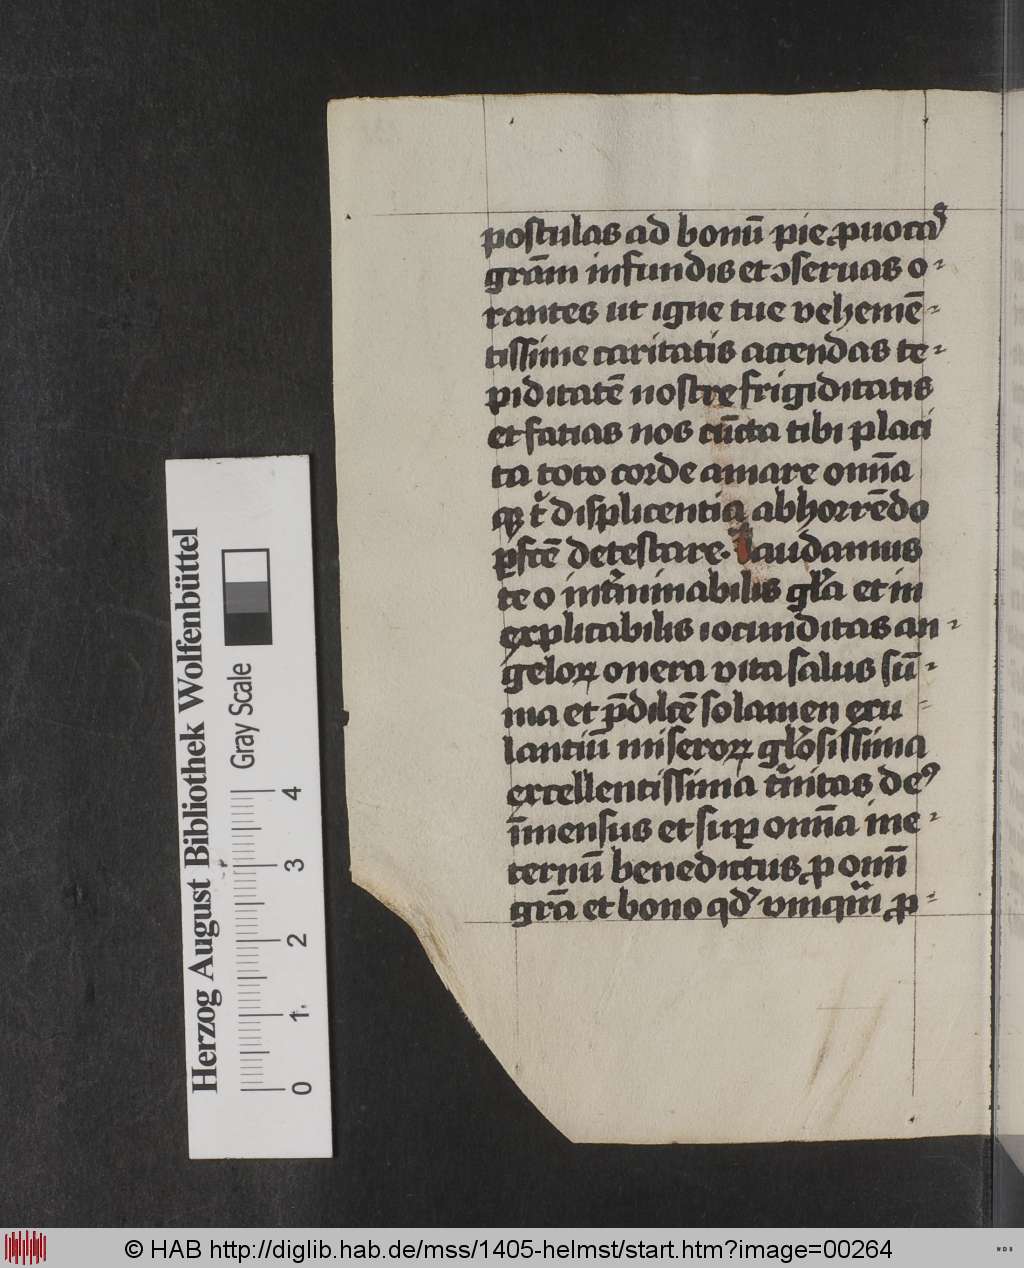 postulas ad bonū pie ꝓuocãs
grãm infundis et ↄseruas o⸗
rantes ut igne tue vehemē⸗
tissime caritatis accendas te⸗
piditatē nostre frigiditatis
et fatias nos cūcta tibi placi
ta toto corde amare omīa
qꝫ t̉ displicentia abhorrēdo
ꝑfcē detestare. Laudamus
te o int̉minabilis gl̉a et in
explicabilis iocunditas an⸗
geloꝝ o uera vita salus sū⸗
ma et p̄dilcē solamen exu⸗
lantiū miseroꝝ gl̉osissima
excellentissima t̉nitas deꝰ
īmensus et suꝑ omīa in e⸗
ternū benedictus ꝓ omī
grã et bono qd̛ vnicuiqꝫ ꝓ⸗
Herzog August Bibliothek Wolfenbüttel
Gray Scale
0 1 2 3 4
© HAB http://diglib.hab.de/mss/1405-helmst/start.htm?image=00264